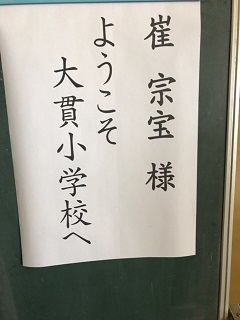 崔 宗宝 様
ようこそ
大貫小学校へ